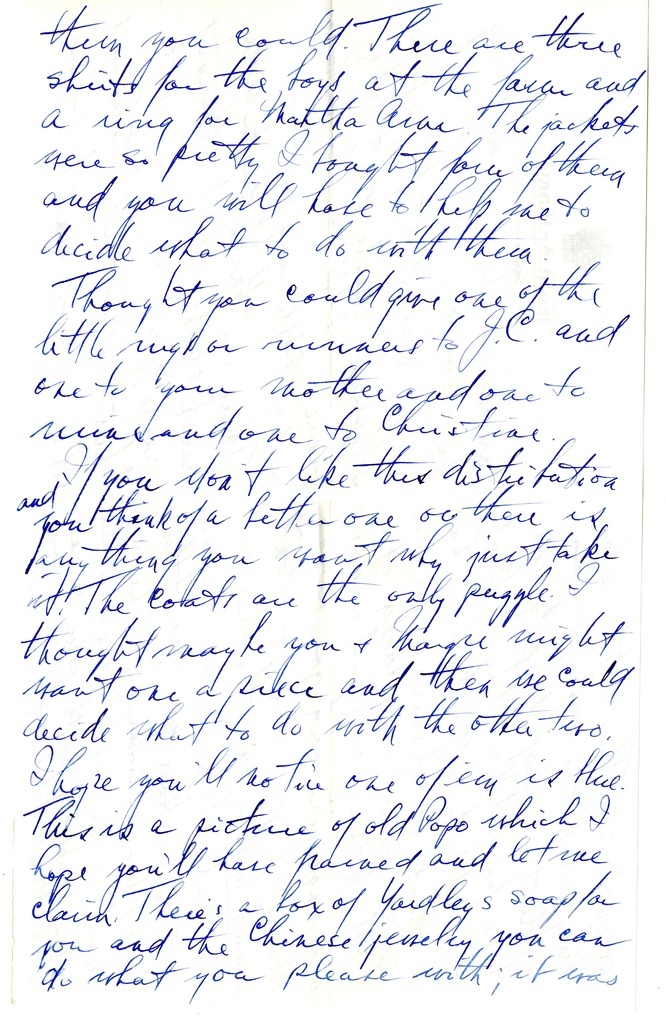 them you could. There are three
shirts for the boys at the farm and
a ring for Martha Ann. The jackets
were so pretty I bought four of them
and you will have to help me to
decide what to do with them.
Thought you could give one of the
little rugs or runners to J.C. and
one to your mother and one to
mine and one to Christine.
If you don't like this distribution
and
you think of a better one or there is
anything you want why just take
it. The coats are the only puzzle. I
thought maybe you & Margie might
want one a piece and then we could
decide what to do with the other two.
I hope you'll notice one of em is blue.
This is a picture of old Popo which I
hope you'll have framed and let me
claim. There's a box of Yardleys soap for
you and the Chinese jewelry you can
do what you please with; it was